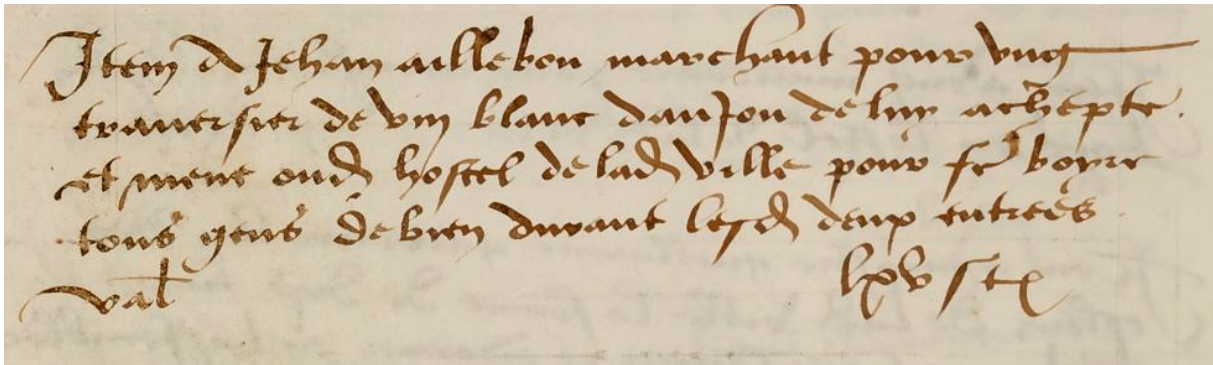 Item A Jehan aillebou marchant pour ung
traversier de vin blanc danjou de luy achepte.
et mene oud hostel de lad ville pour fe boyre
tous gens de bien durant lesd deux entrees.
val lxv s t